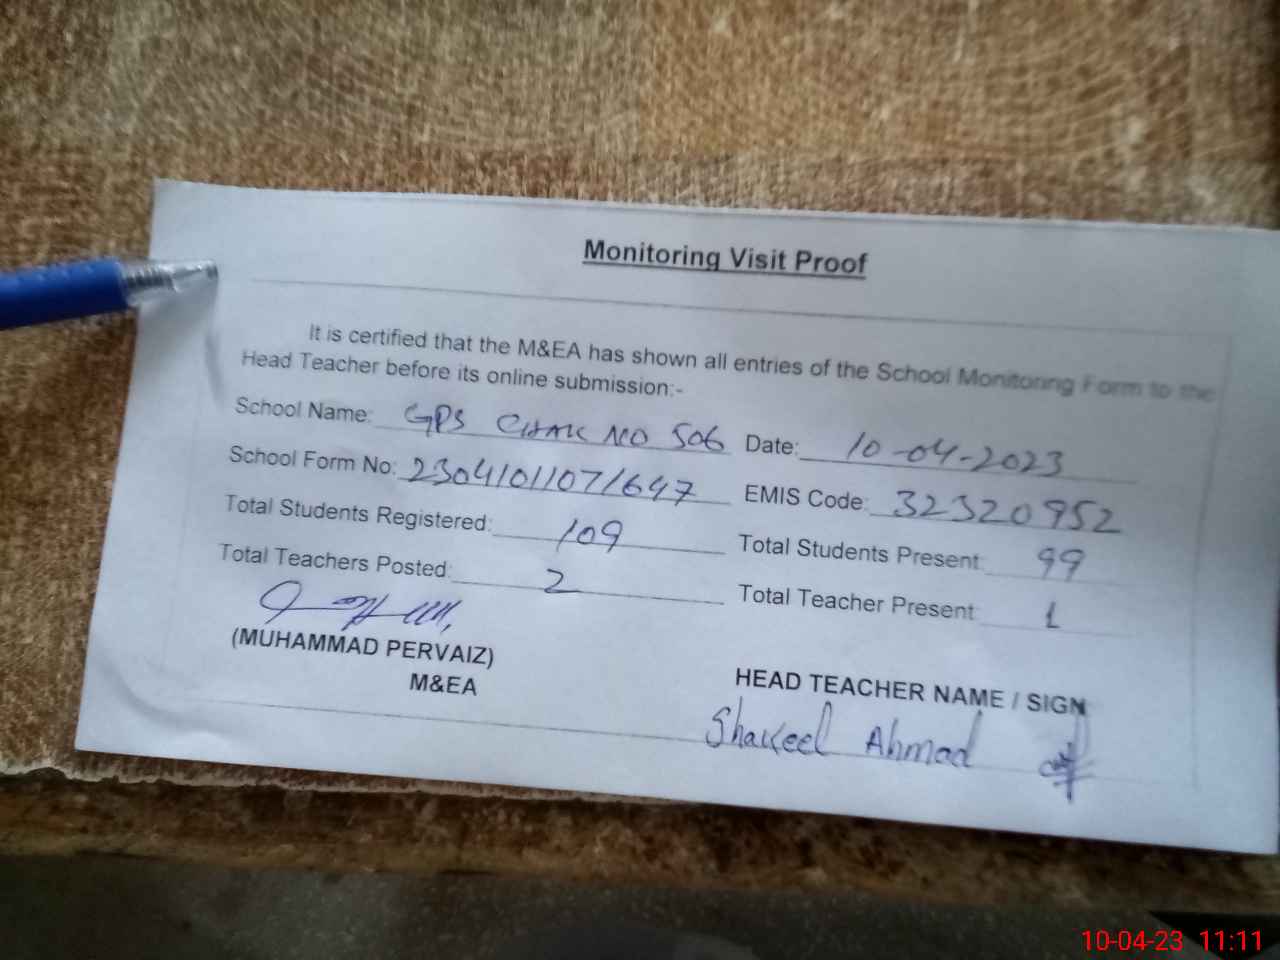 Monitoring Visit Proof
It is certified that the M&EA has shown all entries of the School Monitoring Form to the
Head Teacher before its online submission:-
School Name: GPS CHAK NO 506 Date: 10-04-2023
School Form No: 23041011071647 EMIS Code: 32320952
Total Students Registered: 109 Total Students Present: 99
Total Teachers Posted: 2 Total Teacher Present 1
(MUHAMMAD PERVAIZ)
M&EA
HEAD TEACHER NAME / SIGN
Shakeel Ahmad
10-04-23 11:11